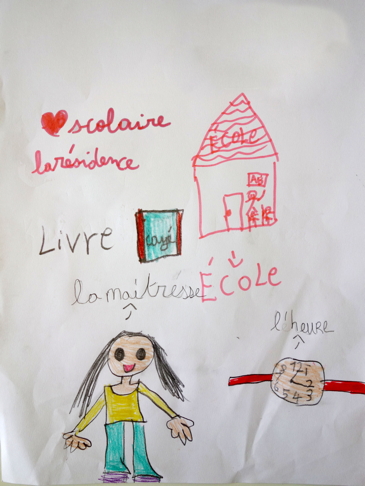 scolaire
la résidence
ÉCOLE
AB
Livre
la maîtrésse
ÉCOLE
l'heure
12 1
2
3
4
5